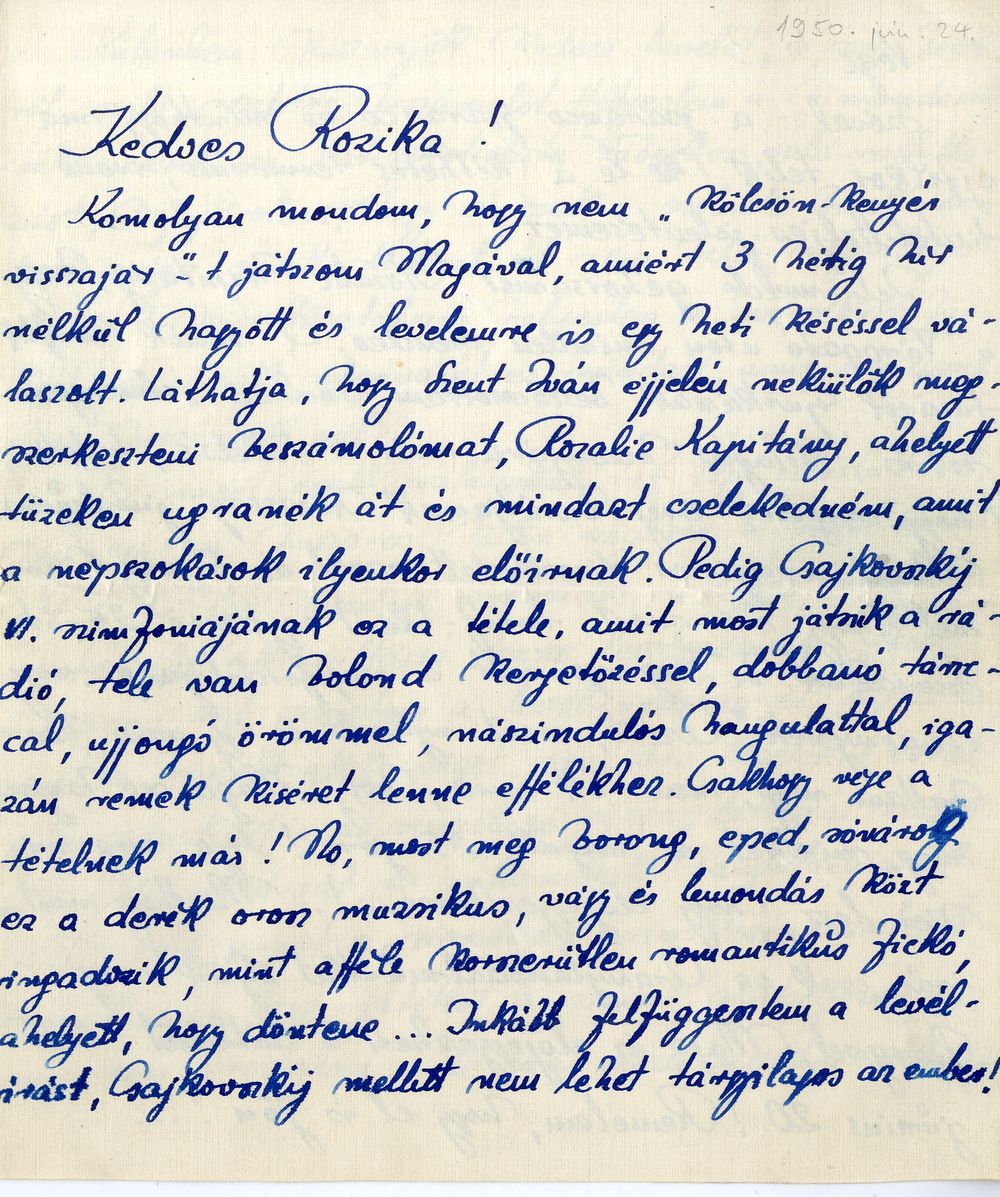 1950. jún. 24.
Kedves Rozika!
Komolyan mondom, hogy nem „ Kölcsön-kenyér
visszajár "- t játszom Magával, amiért 3 hétig hír
nélkül hagyott és levelemre is egy heti késéssel vá-
laszolt. Láthatja, hogy Szent Iván éjjelén nekiülök meg-
szerkeszteni beszámolómat, Rozalie Kapitány, ahelyett
tüzeken ugranék át és mindazt cselekedném, amit
a népszokások ilyenkor előírnak. Pedig Csajkovszkij
VI. szimfoniájának ez a tétele, amit most játszik a rá-
dió, tele van bolond kergetőzéssel, dobbanó tánc-
cal, ujjongó örömmel, nászindulós hangulattal, iga-
zán remek kiséret lenne effélékhez. Csakhogy vége a
tételnek már! No, most meg borong, eped, sóvárog
ez a derék orosz muzsikus, vágy és lemondás közt
ingadozik, mint afféle korszerütlen romantikus fickó,
ahelyett, hogy döntene ... Inkább felfüggesztem a levél-
írást, Csajkovszkij mellett nem lehet tárgyilagos az ember!